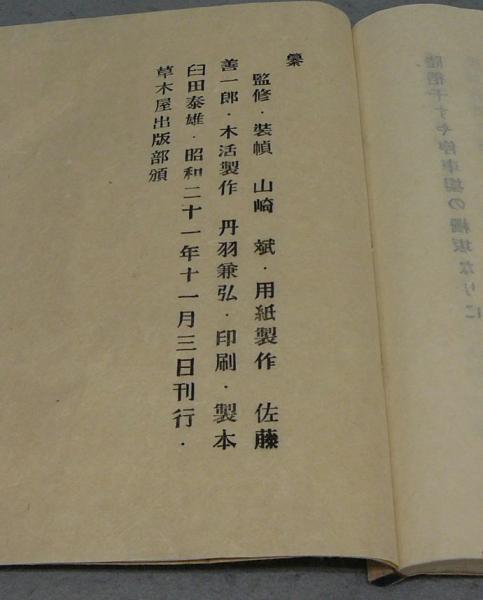 纂
監修・裝幀 山崎 斌・用紙製作 佐藤
善一郎・木活製作 丹羽兼弘・印刷・製本
臼田泰雄・昭和二十一年十一月三日刊行・
草木屋出版部頒